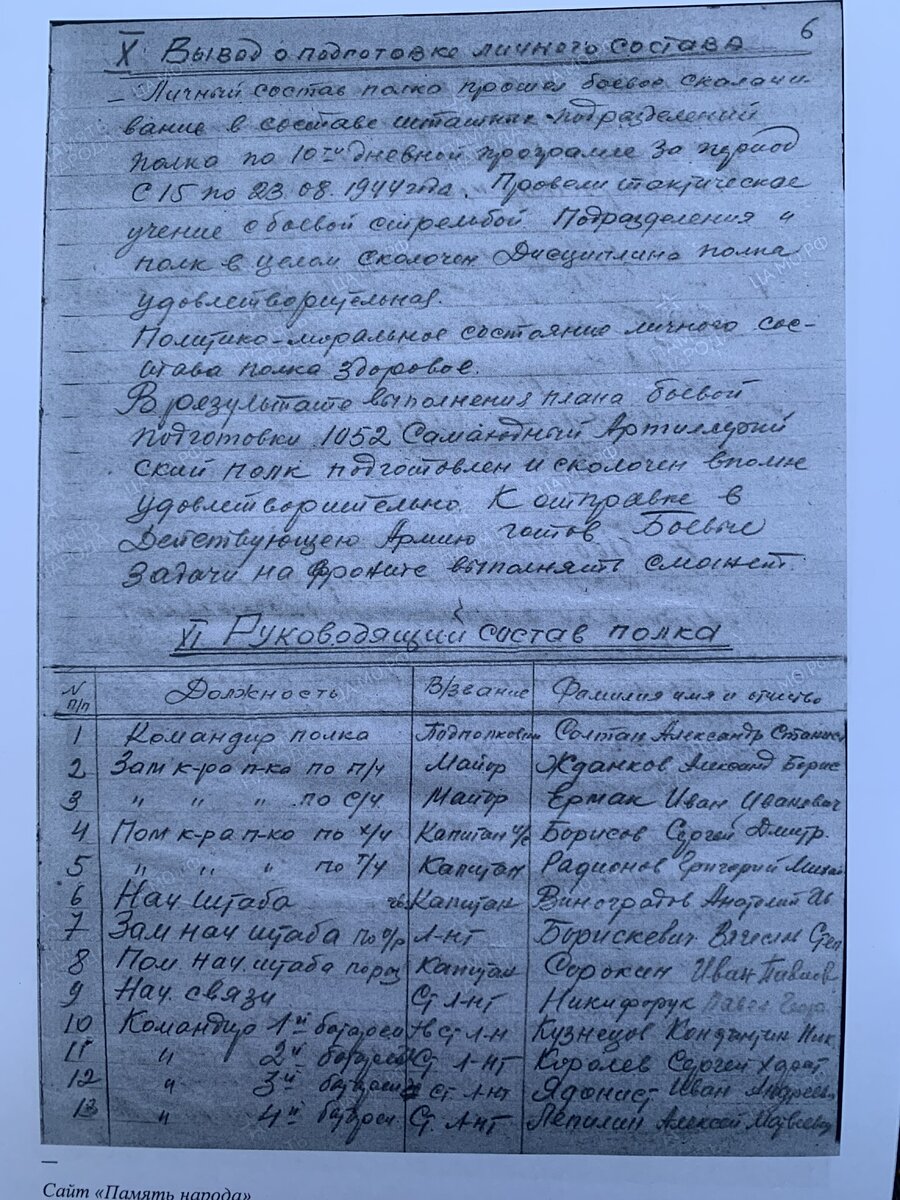 6
X Вывод о подготовке личного состава
– Личный состав полка прошел боевое сколачи
вание в составе штатных подразделений
полка по 10ти дневной программе за период
с 15 по 23.08.1944 года. Провели тактическое
учение с боевой стрельбой. Подразделения и
полк в целом сколочен Дисциплина полка
удовлетворительная.
Политико-моральное состояние личного сос-
тава полка здоровое.
В результате выполнения плана боевой
подготовки 1052 Самоходный Артиллерий
ский полк подготовлен и сколочен вполне
удовлетворительно. К отправке в
Действующею Армию готов Боевые
задачи на фронте выполнять сможет.
VI Руководящий состав полка
N п/п Должность В/звание Фамилия имя и отчество
1 Командир полка Подполковн Солтан Александр Станисл
2 Зам к-ра п-ка по п/ч Майор Жданков Александ Борис
3 " " " по с/ч Майор Ермак Иван Иванович
4 Пом к-ра п-ка по х/ч Капитан Борисов Сергей Дмитр.
5 " " " по т/ч Капитан Радионов Григорий Михай
6 Нач штаба Капитан Виноградов Анатолий Ив
7 Зам нач штаба по о/р Л-нт Борискевич
8 Пом нач. штаба по раз Капитан Сорокин Иван Павлов
9 Нач. связи Ст Л-нт Никифорук Павел
10 Командир 1й батареи Ст Л-н Кузнецов Ник
11 " 2й батареи Ст Л-нт Королев Сергей
12 " 3й батареи Ст Л-нт Иван Андреев
13 " 4й батареи Ст Л-нт Лепилин Алексей Матвеевич
Сайт «Память народа»